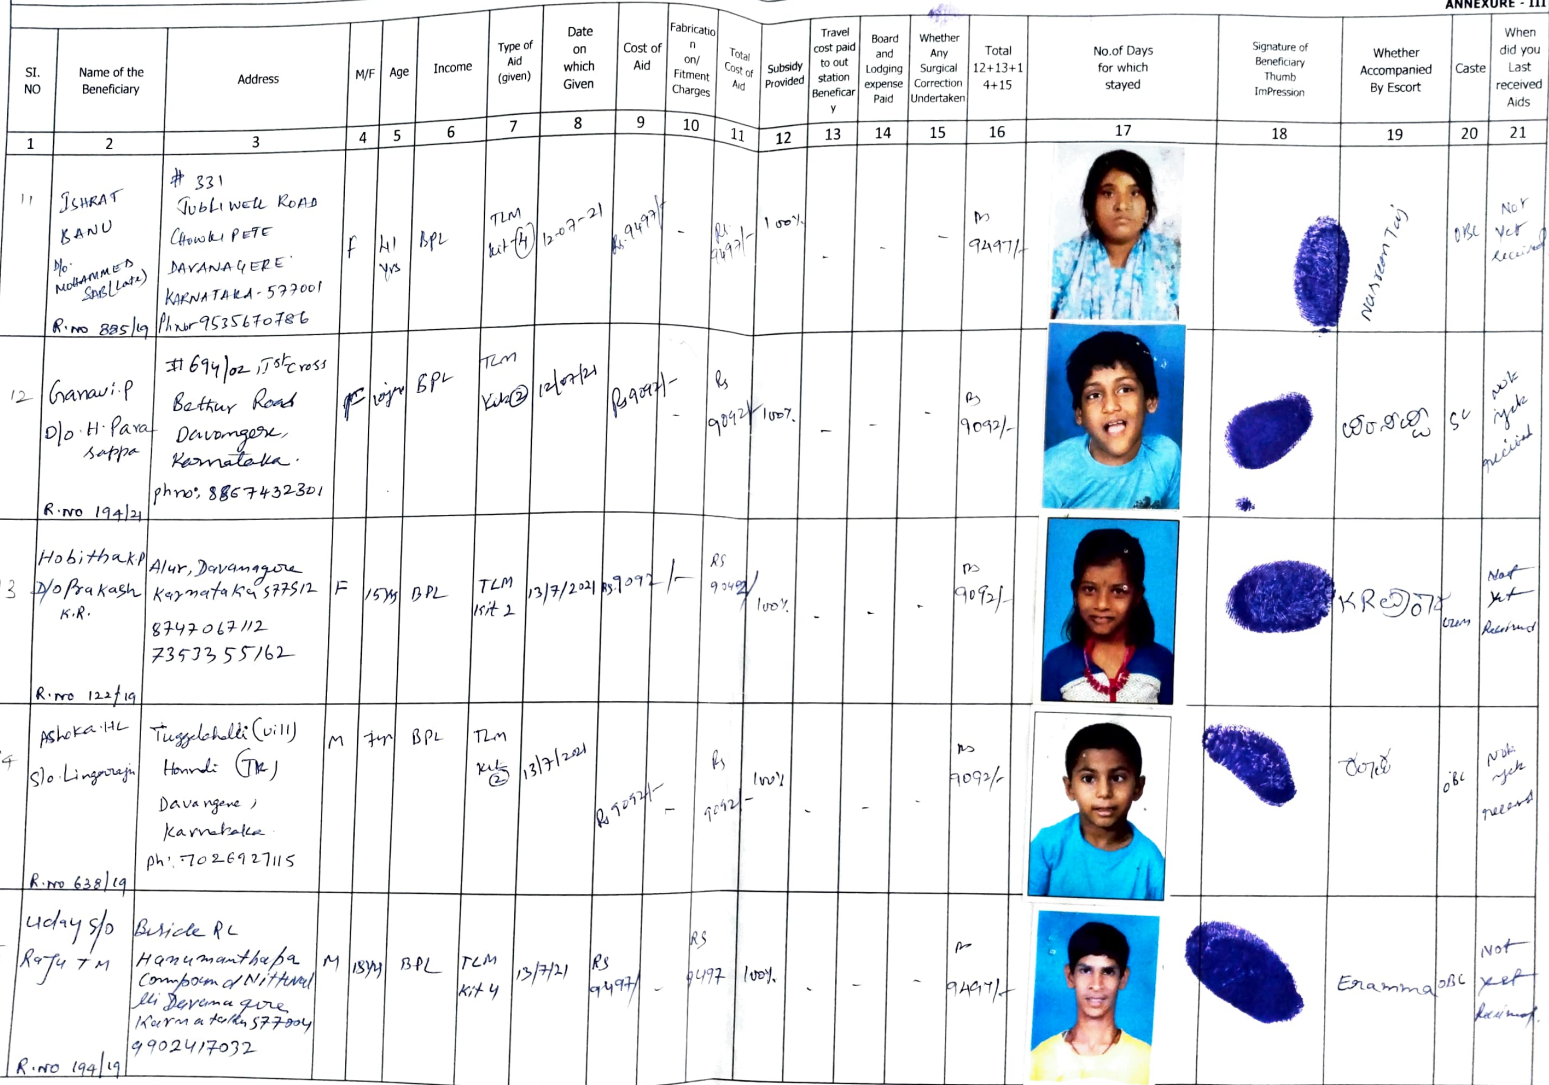 ANNEXURE - III
SI. NO
Name of the Beneficiary
Address
M/F
Age
Income
Type of Aid (given)
Date on which Given
Cost of Aid
Fabricatio n on/ Fitment Charges
Total Cost of Aid
Subsidy Provided
Travel cost paid to out station Beneficar y
Board and Lodging expense Paid
Whether Any Surgical Correction Undertaken
Total 12+13+1 4+15
No.of Days for which stayed
Signature of Beneficiary Thumb ImPression
Whether Accompanied By Escort
Caste
When did you Last received Aids
1 2 3 4 5 6 7 8 9 10 11 12 13 14 15 16 17 18 19 20 21
11
ISHRAT
BANU
D/o.
MOHAMMED
SAB(Late)
R.no 885/19
# 331
JUBLIWELL ROAD
CHOWKIPETE
DAVANAGERE
KARNATAKA-577001
Phno-9535670786
F
41 yrs
BPL
TLM
Kit-(4)
12-07-21
Rs.9497/-
-
Rs.
9497/-
100%
-
-
-
Rs
9497/-
Nasreen Taj
OBC
Not
Yet
Received
12
Ganavi.P
D/o.H.Para
sappa
R.no 194/21
#694/02, Ist cross
Bethur Road
Davangere,
Karnataka.
phno: 8867432301
F
10yrs
BPL
TLM
Kit②
12/07/21
Rs9092/-
-
Rs
9092/-
100%
-
-
-
Rs
9092/-
SC
Not
yet
received
3
Hobithak.P
D/o Prakash
K.R.
R.no 122/19
Alur, Davanagere
Karnataka 577512
8747067112
7353355162
F
15yrs
BPL
TLM
Kit 2
13/7/2021
Rs.9092
/-
RS
9092/
100%
-
-
-
Rs
9092/-
Not
Yet
Received
4
Ashoka.HL
S/o.Lingaraju
R.no 638/19
(vill)
Honnali (TK)
Davangere,
Karnataka
ph:-7026927115
M
7yrs
BPL
TLM
Kit
②
13/7/2021
Rs 9092/-
-
Rs
9092/-
100%
-
-
-
Rs
9092/-
OBC
Not
yet
received
Uday S/o
Raju T M
R.no 194/19
Beside RL
Hanumanthapa
Compound Nittuval
lli Davanagere
Karnataka 577004
9902417032
M
18yrs
BPL
TLM
Kit 4
13/7/21
RS
9497/
-
RS
9497
100%
-
-
-
Rs
9497/-
Eramma
OBC
Not
yet
Received.